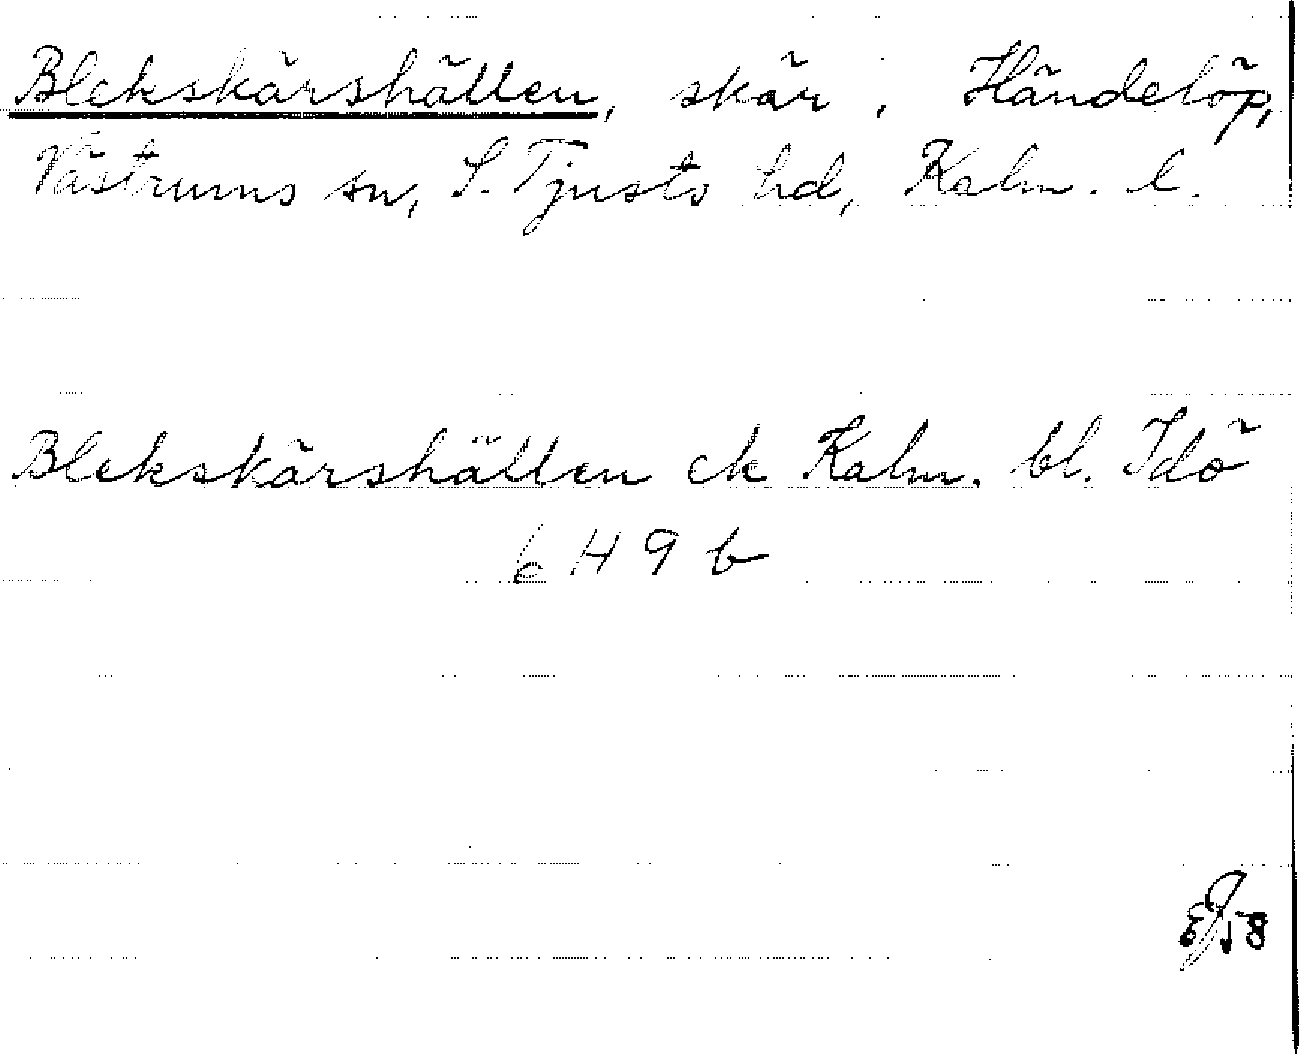 Blekskärshällen, skär i Händelöp,
Västrums sn, S. Tjusts hd, Kalm. l.
Blekskärshällen ek Kalm. bl. Idö
6 H 9 b